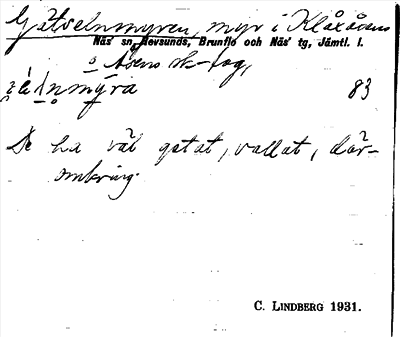 Gätselnmyren, myr i Klåxåsens
Näs' sn, Revsunds, Brunflo och Näs' tg, Jämtl. l.
o Åsens sk-lag,
83
De ha väl getat, vallat, där-
omkring.
C. LINDBERG 1931.